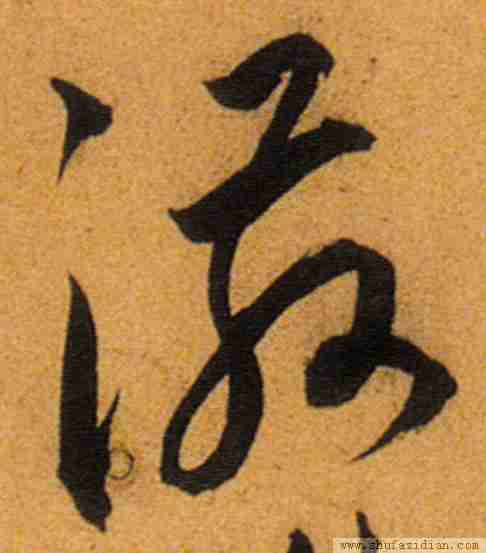 激
www.shufazidian.com